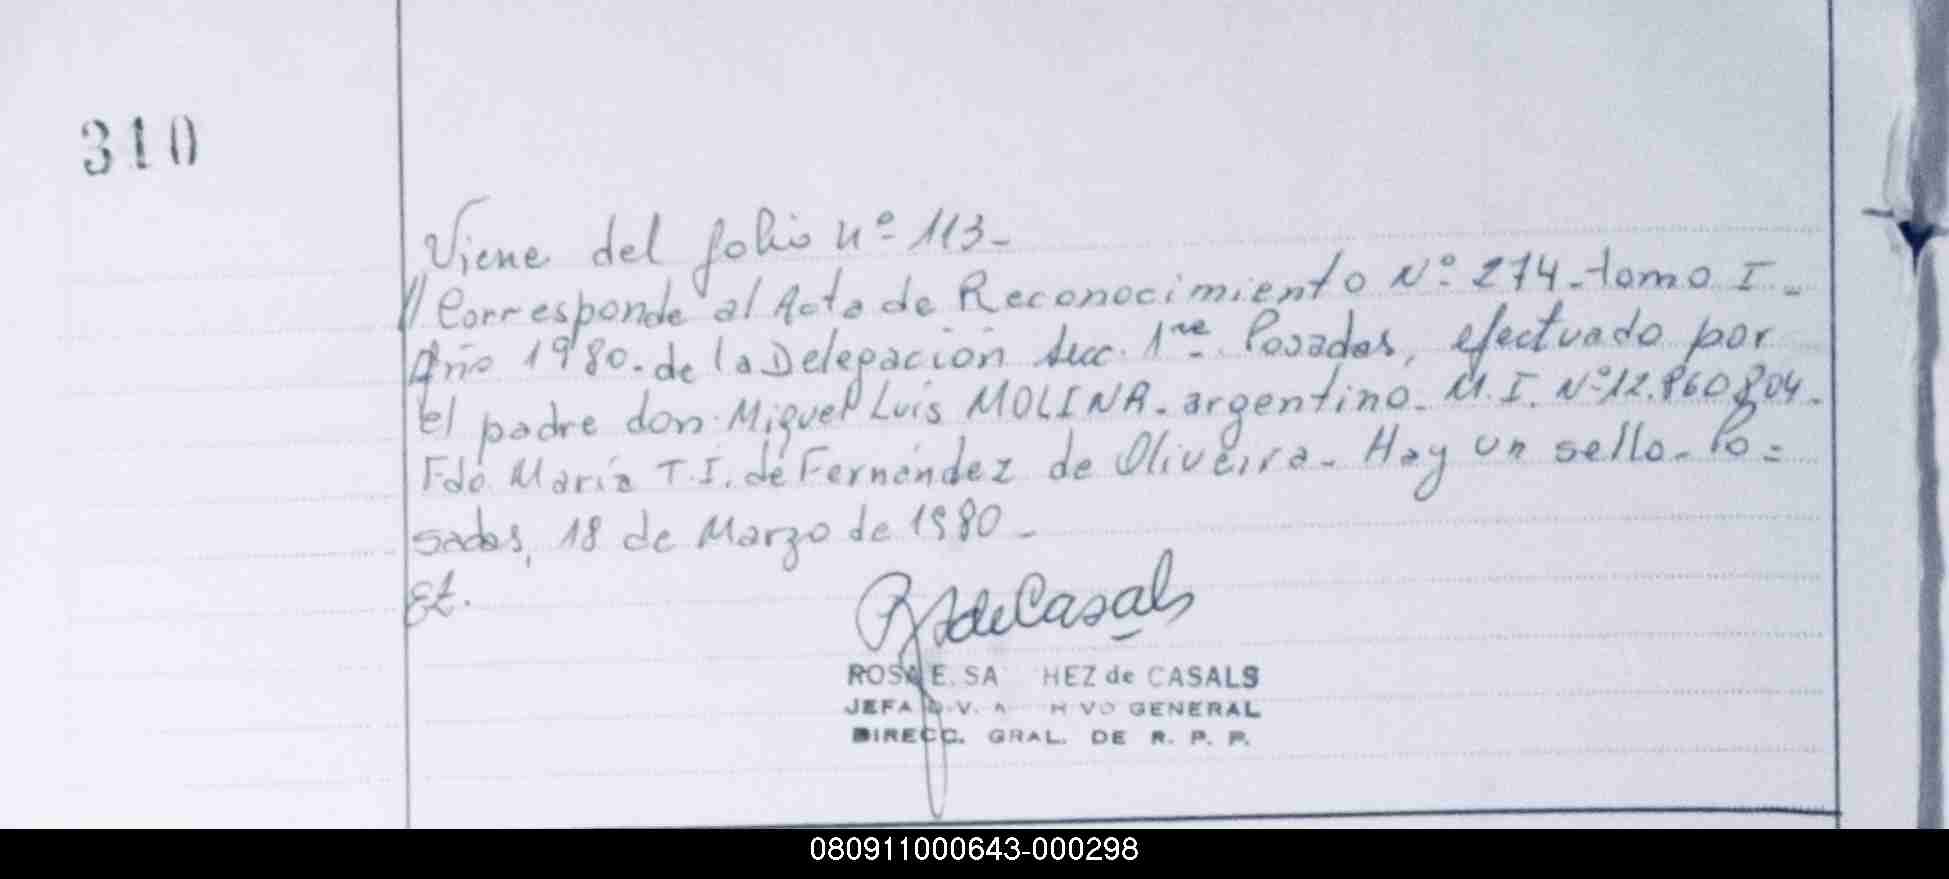 310
Viene del folio Nº 113-
// Corresponde al Acta de Reconocimiento Nº 274-tomo I-
Año 1980. de la Delegación Secc. 1ra Posadas, efectuado por
el padre don Miguel Luis MOLINA. argentino. M.I. Nº 12.860.804.
Fdo María T.I. de Fernández de Oliveira. Hay un sello. Po=
sadas, 18 de Marzo de 1980-
deCasals
ROSA E. SA HEZ de CASALS
JEFA D V. A H VO GENERAL
DIRECC. GRAL. DE R. P. P.
080911000643-000298